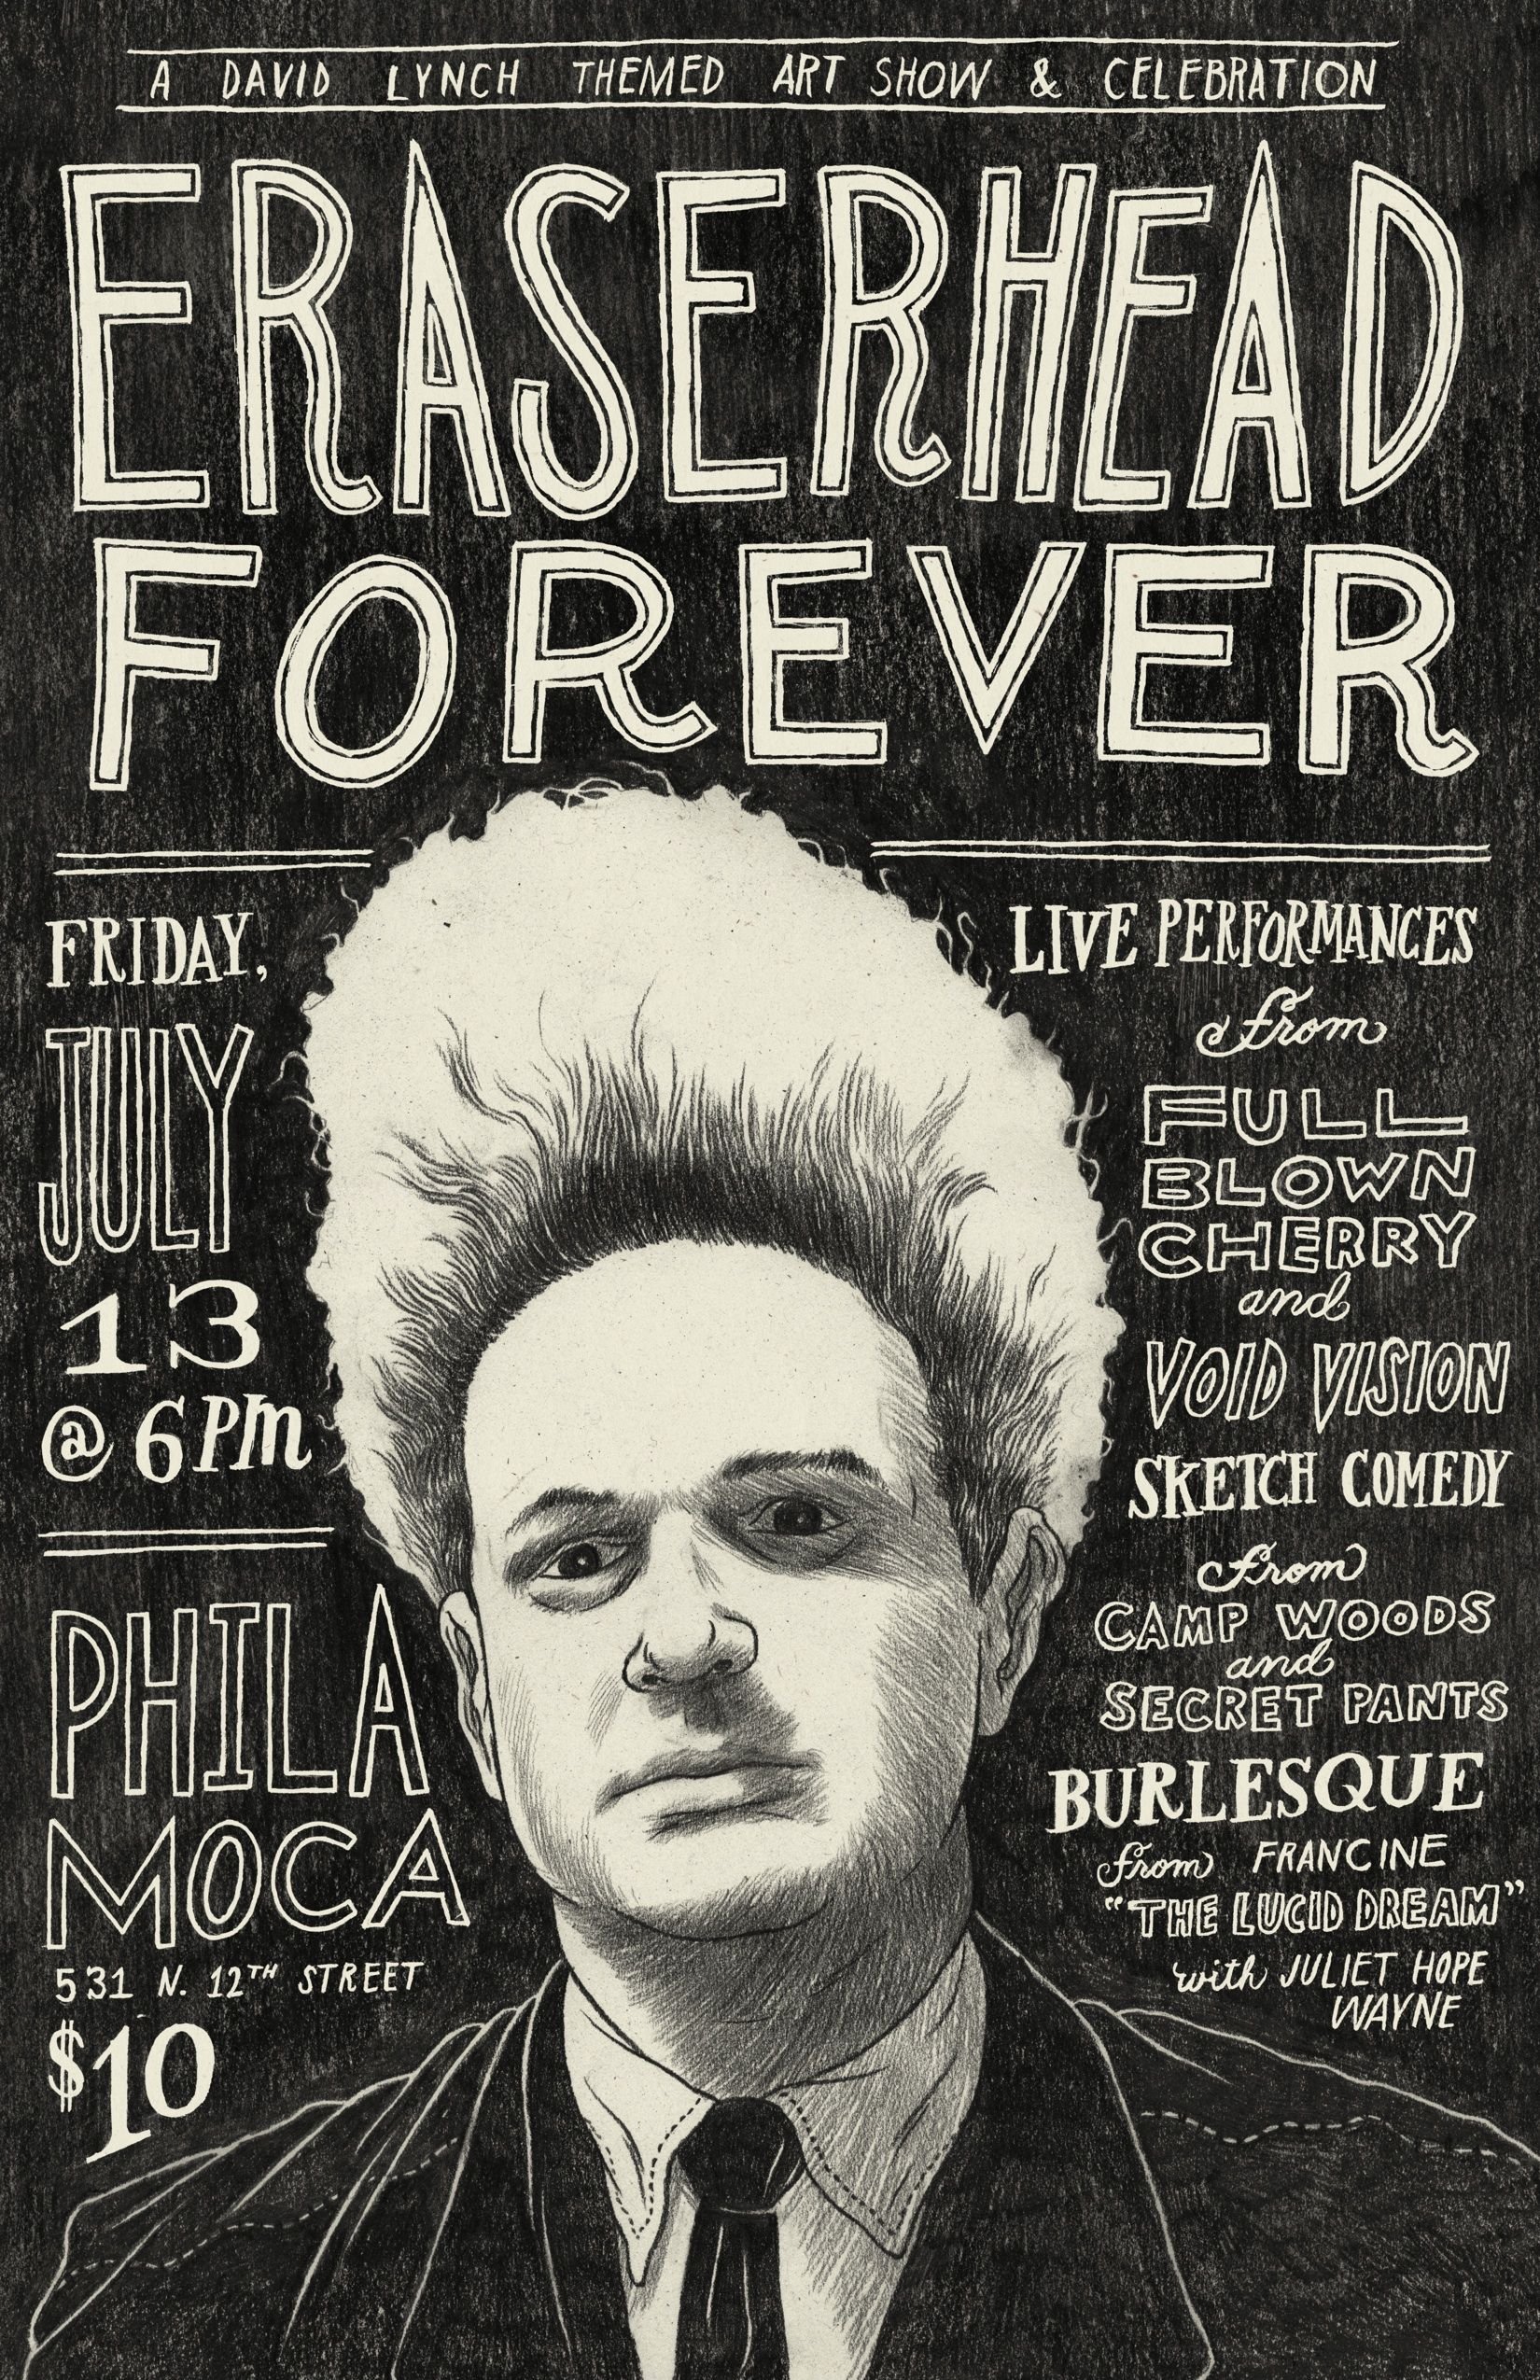 A DAVID LYNCH THEMED ART SHOW & CELEBRATION
ERASERHEAD
FOREVER
FRIDAY,
JULY
13
@ 6PM
PHILA
MOCA
531 N. 12TH STREET
$10
LIVE PERFORMANCES
from
FULL
BLOWN
CHERRY
and
VOID VISION
SKETCH COMEDY
from
CAMP WOODS
and
SECRET PANTS
BURLESQUE
from FRANCINE
"THE LUCID DREAM"
with JULIET HOPE
WAYNE